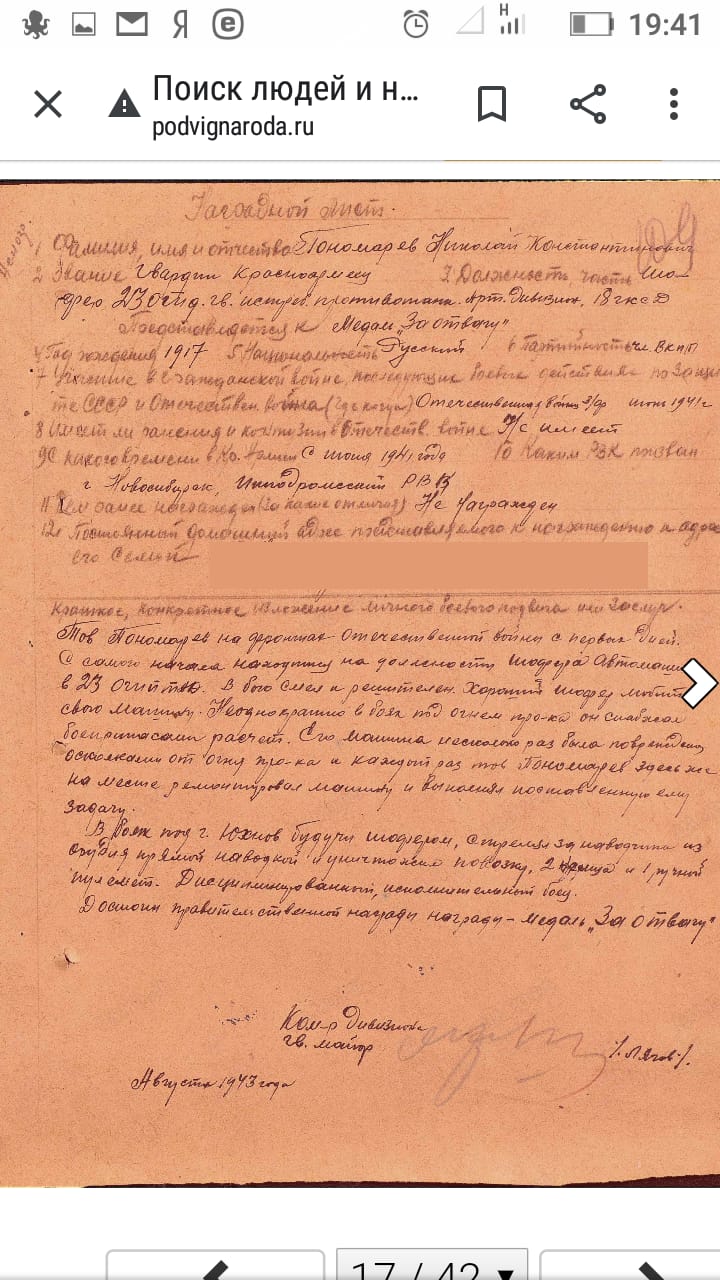 19:41
Поиск людей и н...
podvignaroda.ru
Наградной лист.
1 Фамилия, имя и отчество Пономарев Николай Константинович
2 Звание Гвардии Красноармеец 3 Должность, часть шо-
фер, 23 отд. гв. истреб. противотанк. Арт. Дивизион, 18 гксд
Представляется к Медали „За отвагу"
4 Год рождения 1917 5 Национальность Русский 6 Партийность чл. ВКП/б
7 Участие в Гражданской войне, последующих боевых действиях по защи
те СССР и Отечествен. войне (где когда) Отечественная война З/фр июнь 1941 г
8 Имеет ли ранения и контузии в Отечеств. войне Не имеет
9 С какого времени в Кр. Армии С июня 1941 года 10 Каким РВК призван
г Новосибирск, Ипподромский РВК
11 Чем ранее награжден (за какие отличия) Не Награжден
12 Постоянный домашний адрес представляемого к награждению и адрес
его Семьи
Краткое, конкретное изложение личного боевого подвига или заслуг.
Тов Пономарев на фронтах Отечественной войны с первых дней.
С самого начала находится на должности шофера Автомаши
в 23 . В бою смел и решителен. Хороший шофер любит
свою машину. Неоднократно в боях под огнем про-ка он снабжал
боеприпасами расчет. Его машина несколько раз была повреждена
осколками от огня про-ка и каждый раз тов Пономарев здесь же
на месте ремонтировал машину и выполнял поставленную ему
задачу.
В боях под г. Юхнов будучи шофером, стрелял за наводчика из
орудия прямой наводкой и уничтожил повозку, 2 и 1 ручной
пулемет. Дисциплинированный, исполнительный боец.
Достоин правительственной награды награду - медаль „За отвагу"
Ком-р Дивизиона
гв. майор /Лягов/.
Августа 1943 года
17 / 42